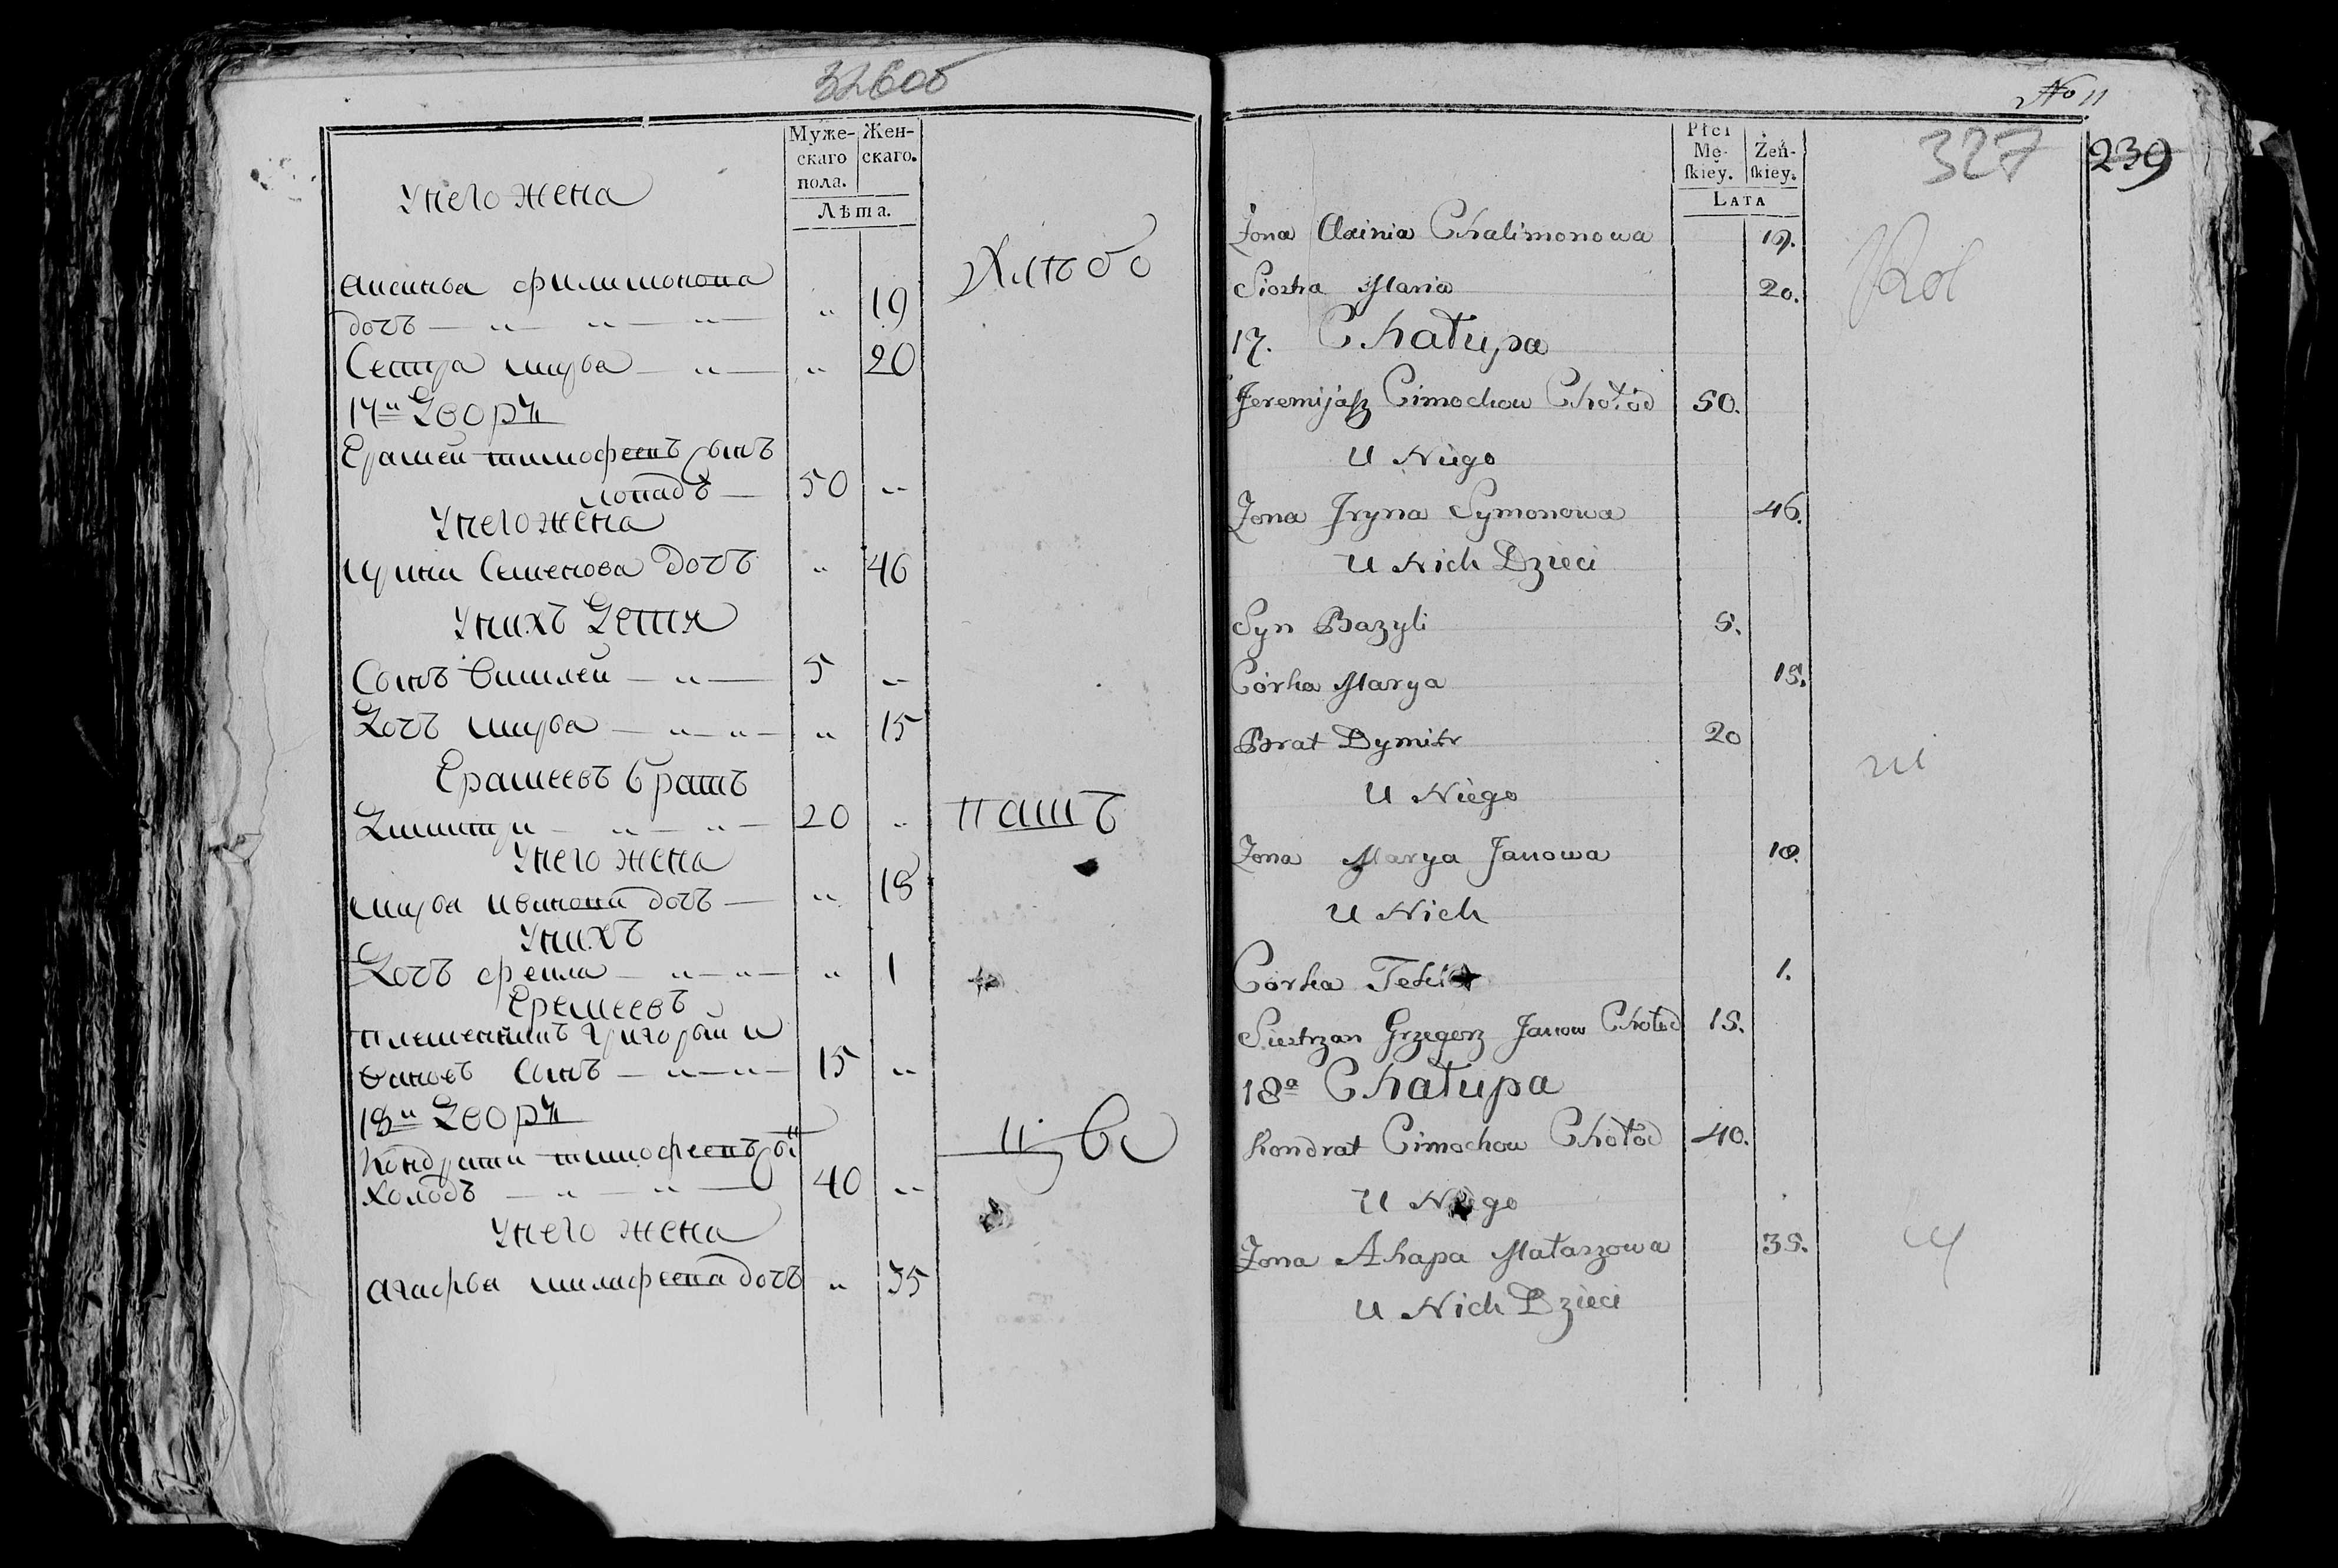 326 об
Муже-
скаго
пола.
Жен-
скаго.
Лѣта.
У него жена
Аксинья филимонова
дочь 19
Сестра марья 20
17й Дворъ
Ерамей тимофеевъ сынъ
50
У него жена
Ирина Семенова дочь 46
У нихъ Детей
Сынъ Василей 5
Дочь марья 15
Ерамеевъ братъ
Дмитри 20
У него жена
марья иванова дочь 18
У нихъ
Дочь фекла 1
Еремеевъ
племенникъ григорьи и
вановъ Сынъ 15
18й Дворъ
Кондрати тимофеевъ
холодъ 40
У него жена
агафья дочь 35
No 11
327
239
Płci
Mę-
skiey.
Żeń-
skiey.
Lata
Żona Axinia Chalimonowa 19.
Siostra Maria 20.
17. Chałupa
Jeremijasz Cimochow Chołod 50.
U Niego
Żona Jryna Symonowa 46.
U Nich Dzieci
Syn Bazyli 5.
Córka Marya 15.
Brat Dymitr 20
U Niego
Żona Marya Janowa 18.
U Nich
Córka 1.
Siestrzan Grzegorz Janow Chołod 15.
18a Chałupa
Kondrat Cimochow Chołod 40.
U Niego
Żona Ahapa Małaszowa 35.
U Nich Dzieci